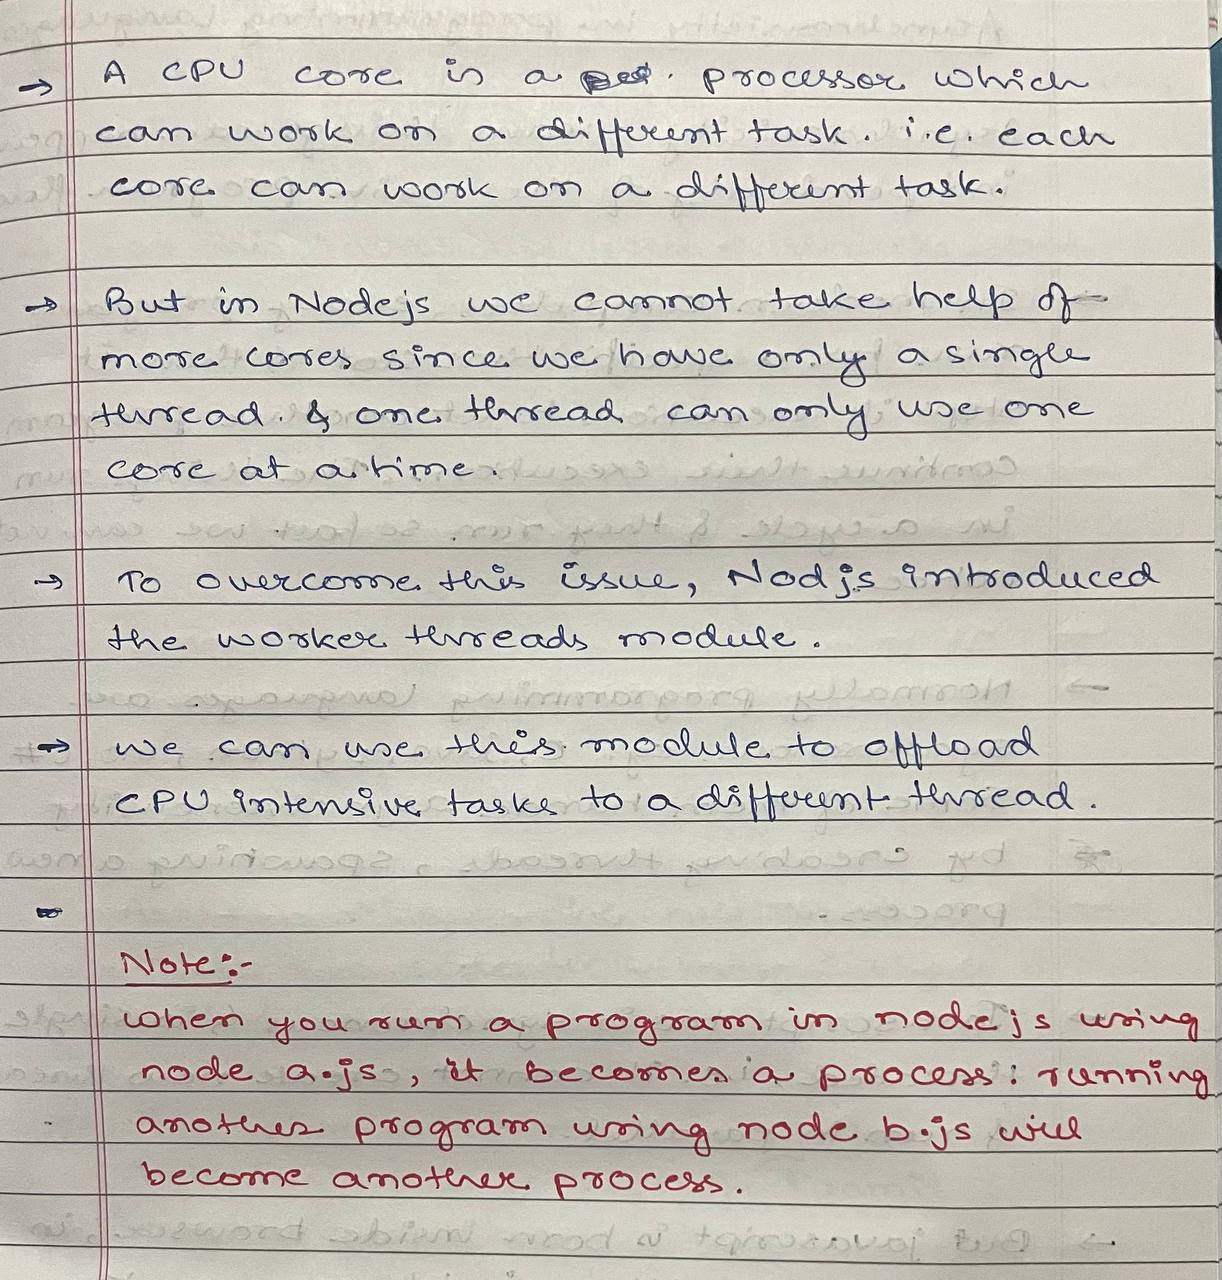 → A CPU core is a processor which
can work on a different task. i.e. each
core can work on a different task.
→ But in Nodejs we cannot take help of
more cores since we have only a single
thread & one thread can only use one
core at a time.
→ To overcome this issue, Nodjs introduced
the worker threads module.
→ we can use this module to offload
CPU intensive tasks to a different thread.
Note:-
when you run a program in node js using
node a.js, it becomes a process: running
another program using node b.js will
become another process.